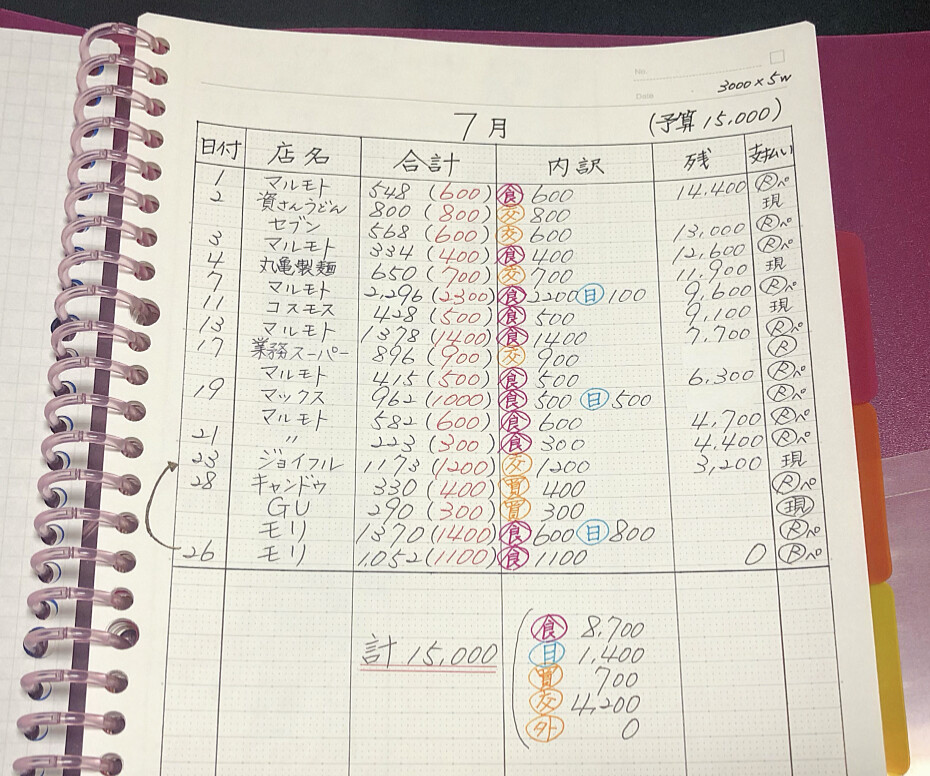 No.
Date
3000×5w
7月 (予算 15,000)
日付 店名 合計 内訳 残 支払い
1 マルモト 548 (600) 食 600 14,400 Ⓡペ
2 資さんうどん 800 (800) 交 800 現
セブン 568 (600) 交 600 13,000 Ⓡペ
3 マルモト 334 (400) 食 400 12,600 Ⓡペ
4 丸亀製麺 650 (700) 交 700 11,900 現
7 マルモト 2,296 (2300) 食 2200 日 100 9,600 Ⓡペ
11 コスモス 428 (500) 食 500 9,100 現
13 マルモト 1378 (1400) 食 1400 7,700 Ⓡペ
17 業務スーパー 896 (900) 交 900 Ⓡ
マルモト 415 (500) 食 500 6,300 Ⓡペ
19 マックス 962 (1000) 食 500 日 500 Ⓡペ
マルモト 582 (600) 食 600 4,700 Ⓡペ
21 〃 223 (300) 食 300 4,400 Ⓡペ
23 ジョイフル 1173 (1200) 交 1200 3,200 現
28 キャンドゥ 330 (400) 買 400 Ⓡペ
GU 290 (300) 買 300 現
モリ 1370 (1400) 食 600 日 800 Ⓡペ
26 モリ 1,052 (1100) 食 1100 0 Ⓡペ
計 15,000
食 8,700
日 1,400
買 700
交 4,200
外 0